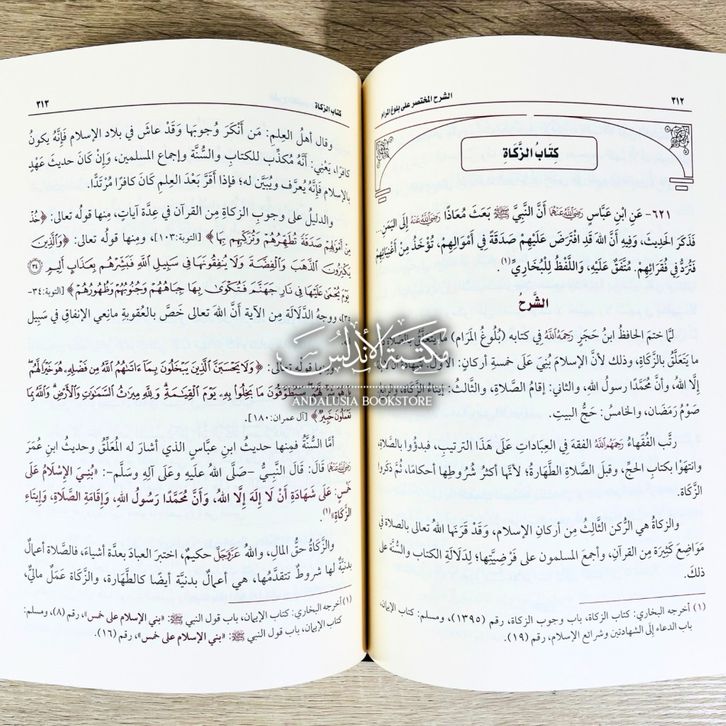 ٣١٢
الشرح المختصر على بلوغ المرام
كِتَابُ الزَّكَاةِ
٦٢١- عَنِ ابْنِ عَبَّاسٍ رَضِيَ اللَّهُ عَنْهُمَا أَنَّ النَّبِيَّ ﷺ بَعَثَ مُعَاذًا رَضِيَ اللَّهُ عَنْهُ إِلَى اليَمَنِ...
فَذَكَرَ الحَدِيثَ، وَفِيهِ أَنَّ اللهَ قَدِ افْتَرَضَ عَلَيْهِمْ صَدَقَةً فِي أَمْوَالِهِمْ، تُؤْخَذُ مِنْ أَغْنِيَائِهِمْ
فَتُرَدُّ فِي فُقَرَائِهِمْ. مُتَّفَقٌ عَلَيْهِ، وَاللَّفْظُ لِلْبُخَارِيِّ(١).
الشَّرْح
لمَّا ختمَ الحافظُ ابنُ حَجَرٍ رَحِمَهُ اللَّهُ في كتابه (بُلُوغ المَرَام) ما يتعلَّق بالصلاة
ما يتَعلَّقُ بالزَّكاةِ، وذلك لأنَّ الإسلامَ بُنِيَ عَلَى خمسةِ أركانٍ: الأول: شهادة
إلَّا اللهُ، وأنَّ محُمَّدًا رسولُ اللهِ، والثاني: إقامُ الصَّلاةِ، والثَّالثُ: إيتاءُ
صَوْمُ رَمَضَان، والخامسُ: حَجُّ البيتِ.
رتَّب الفُقَهاءُ رَحِمَهُمُ اللَّهُ الفِقهَ في العِباداتِ عَلَى هَذَا الترتيبِ، فبدؤُوا بالصَّلاةِ،
وانتهَوْا بكتابِ الحجِّ، وقبلَ الصَّلاةِ الطَّهارةُ؛ لأنَّها أكثرُ شُروطِها أحكامًا، ثُمَّ ذكَروا
الزَّكاة.
والزكاةُ هي الرُّكن الثَّالثُ مِن أركانِ الإسلامِ، وَقَدْ قرَنَها اللهُ تعالى بالصلاةِ في
مَوَاضِعَ كَثيرَة مِن القرآنِ، وأجمعَ المسلمون على فَرْضِيَّتِها؛ لدَلالَةِ الكتابِ والسُّنَّة على
ذلك.
(١) أخرجه البخاري: كتاب الزكاة، باب وجوب الزكاة، رقم (١٣٩٥)، ومسلم: كتاب الإيمان،
باب الدعاء إلى الشهادتين وشرائع الإسلام، رقم (١٩).
كتاب الزكاة
٣١٣
وقال أهلُ العِلمِ: مَن أَنْكَرَ وُجوبَها وَقَدْ عاش في بلاد الإسلام فَإنَّهُ يكونُ
كافرًا، يَعْنِي: أنَّهُ مُكذِّب للكتابِ والسُّنَّة وإجماع المسلمين، وإنْ كانَ حديثَ عَهْدٍ
بالإسلامِ فإنَّهُ يُعرَّف ويُبيَّن له؛ فإذا أَقَرَّ بَعدَ العِلمِ كَانَ كافرًا مُرْتَدًّا.
والدليلُ على وجوبِ الزكاةِ مِن القرآنِ في عِدَّة آياتٍ، مِنها قولُه تعالى: ﴿خُذْ
مِنْ أَمْوَالِهِمْ صَدَقَةً تُطَهِّرُهُمْ وَتُزَكِّيهِم بِهَا﴾ [التوبة:١٠٣]، ومِنها قولُه تعالى: ﴿وَالَّذِينَ
يَكْنِزُونَ الذَّهَبَ وَالْفِضَّةَ وَلَا يُنفِقُونَهَا فِي سَبِيلِ اللَّهِ فَبَشِّرْهُم بِعَذَابٍ أَلِيمٍ ٣٤
يَوْمَ يُحْمَىٰ عَلَيْهَا فِي نَارِ جَهَنَّمَ فَتُكْوَىٰ بِهَا جِبَاهُهُمْ وَجُنُوبُهُمْ وَظُهُورُهُمْ﴾ [التوبة:٣٤-
٣٥]، ووجهُ الدَّلالَة مِن الآيةِ أنَّ اللهَ تعالى خَصَّ بالعُقوبةِ مانِعي الإنفاقِ في سَبِيلِ
قولُه تعالى: ﴿وَلَا يَحْسَبَنَّ الَّذِينَ يَبْخَلُونَ بِمَا آتَاهُمُ اللَّهُ مِن فَضْلِهِ هُوَ خَيْرًا لَّهُم
بَلْ هُوَ شَرٌّ لَّهُمْ سَيُطَوَّقُونَ مَا بَخِلُوا بِهِ يَوْمَ الْقِيَامَةِ وَلِلَّهِ مِيرَاثُ السَّمَاوَاتِ وَالْأَرْضِ وَاللَّهُ بِمَا
تَعْمَلُونَ خَبِيرٌ﴾ [آل عمران:١٨٠].
أمَّا السُّنَّةُ فمِنها حديثُ ابنِ عبَّاسٍ الذي أشار له المُعَلِّقُ وحديثُ ابنِ عُمَرَ
رَضِيَ اللَّهُ عَنْهُمَا قَالَ: قَالَ النَّبِيُّ -صَلَّى اللهُ عليهِ وعَلَى آلِهِ وسَلَّم-: «بُنِيَ الإِسْلَامُ عَلَى
خَمْسٍ: عَلَى شَهَادَةِ أَنْ لَا إِلَهَ إِلَّا اللهُ، وَأَنَّ مُحَمَّدًا رَسُولُ اللهِ، وَإِقَامِ الصَّلَاةِ، وَإِيتَاءِ
الزَّكَاةِ»(١).
والزَّكاةُ حقُّ المالِ، واللهُ عَزَّوَجَلَّ حكيمٌ، اختبرَ العبادَ بعدَّة أشياءَ، فالصَّلاة أعمالٌ
بدنيَّةٌ لها شروطٌ تتقدَّمُها، هي أعمالٌ بدنيَّة أيضًا كالطَّهارة، والزَّكاة عَمَلٌ ماليٌّ،
(١) أخرجه البخاري: كتاب الإيمان، باب قول النبي ﷺ: «بني الإسلام على خمس»، رقم (٨)، ومسلم:
كتاب الإيمان، باب قول النبي ﷺ: «بني الإسلام على خمس»، رقم (١٦).
مكتبة الأندلس
ANDALUSIA BOOKSTORE